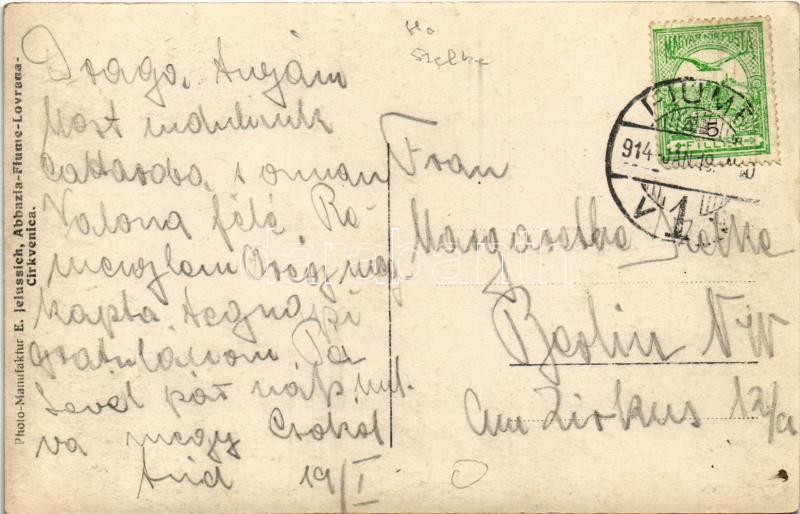 Photo-Manufaktur E. Jelussich, Abbazia-Fiume-Lovrana-
Cirkvenica.
Szelke
MAGYAR KIR. POSTA
FIUME
5
FILLÉR
914 JAN. 19.
1
Drága Anyám
Most indulunk
Cattaroba, s onnan
Valona félé. Re-
mélem
kapta tegnapi
gratulációm
Level pár nap mul-
va megy Csokol
19/I
Frau
Margarethe
Berlin NW
Am Zirkus 12/a
darabanth